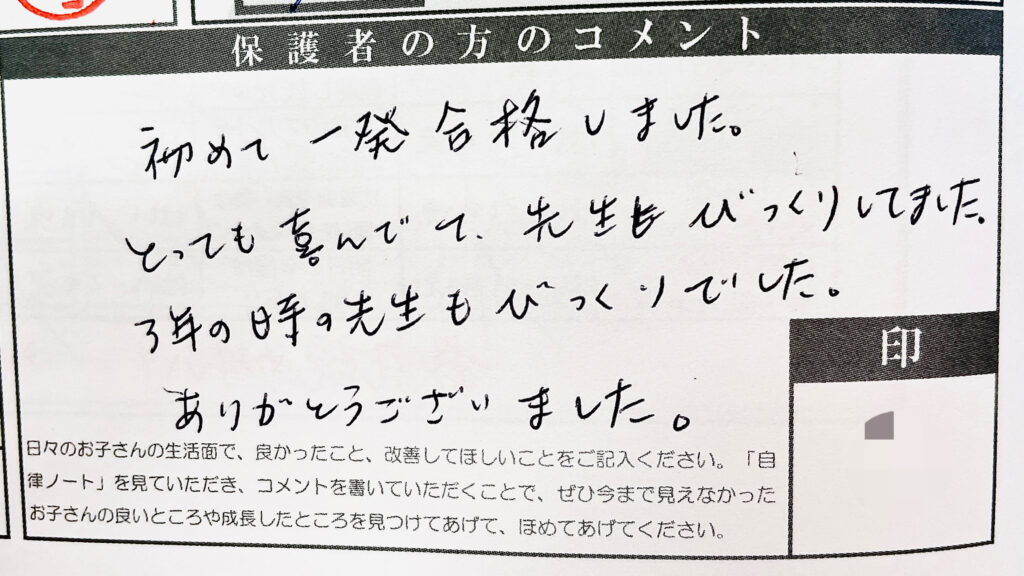 保護者の方のコメント
初めて一発合格しました。
とっても喜んでて、先生もびっくりしてました
3年の時の先生もびっくりでした。
ありがとうございました。
印
日々のお子さんの生活面で、良かったこと、改善してほしいことをご記入ください。「自
律ノート」を見ていただき、コメントを書いていただくことで、ぜひ今まで見えなかった
お子さんの良いところや成長したところを見つけてあげて、ほめてあげてください。